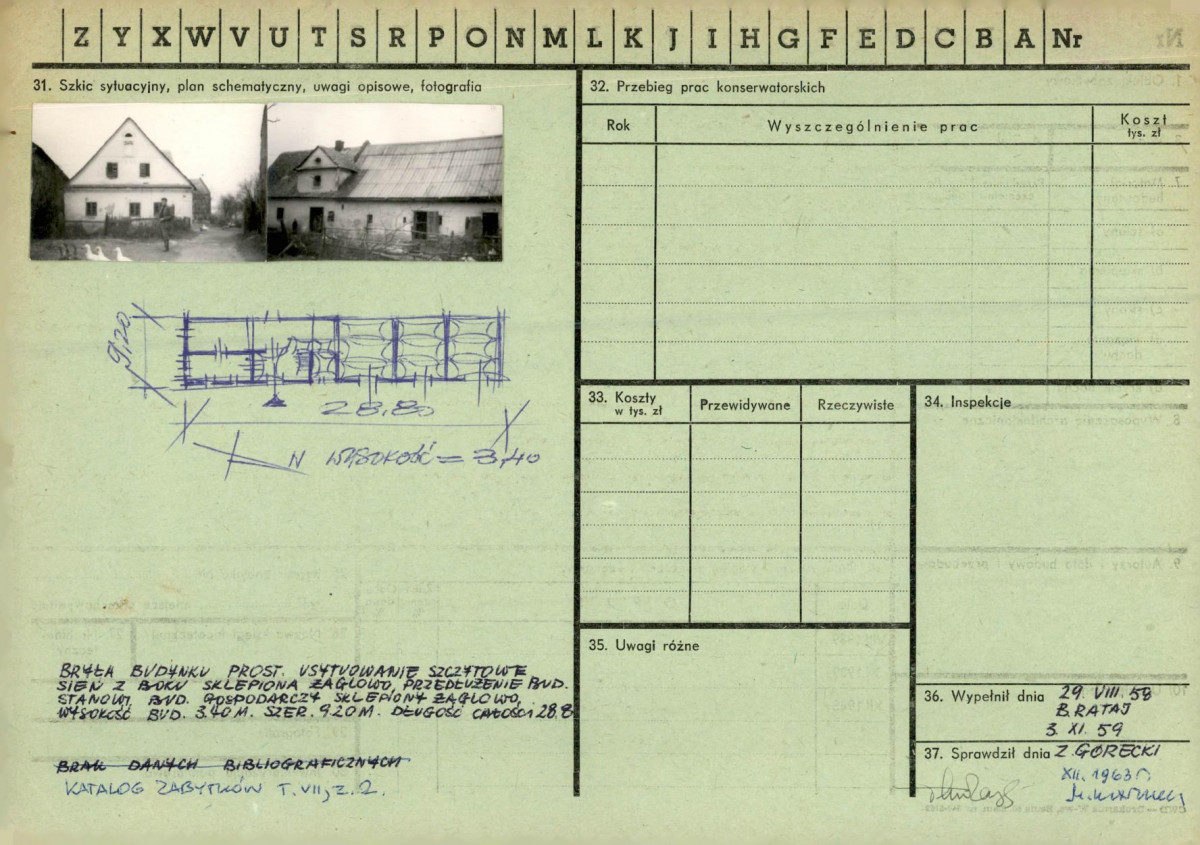 Z Y X W V U T S R P O N M L K J I H G F E D C B A Nr
31. Szkic sytuacyjny, plan schematyczny, uwagi opisowe, fotografia
9,20
28.80
N WYSOKOŚĆ = 3,40
BRYŁA BUDYNKU PROST. USYTUOWANIE SZCZYTOWE
SIEŃ Z BOKU SKLEPIONA ŻAGLOWO, PRZEDŁUŻENIE BUD.
STANOWI BUD. GOSPODARCZY SKLEPIONY ŻAGLOWO,
WYSOKOŚĆ BUD. 3.40 M. SZER. 9.20 M. DŁUGOŚĆ CAŁOŚCI 28.8
BRAK DANYCH BIBLIOGRAFICZNYCH
KATALOG ZABYTKÓW T. VII, z. 2.
32. Przebieg prac konserwatorskich
Rok Wyszczególnienie prac Koszt
tys. zł
33. Koszty
w tys. zł
Przewidywane Rzeczywiste
34. Inspekcje
35. Uwagi różne
36. Wypełnił dnia 29. VIII. 59
B. RATAJ
3. XI. 59
37. Sprawdził dnia Z. GÓRECKI
XII. 1963 r.